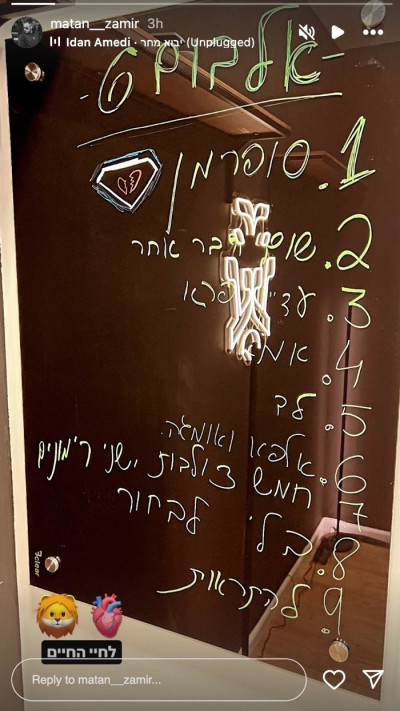 matan__zamir 3h
Idan Amedi · יבוא מחר (Unplugged)
-אלבום 6-
1. סופרמן
2. שום דבר אחר
3. עדיין
4.
5. לב
6. אלפא ואומגה.
7 חמש צולבות ישני רימונים
8. בלי לבחור
9. להתראות
3clear
לחיי החיים
Reply to matan__zamir...